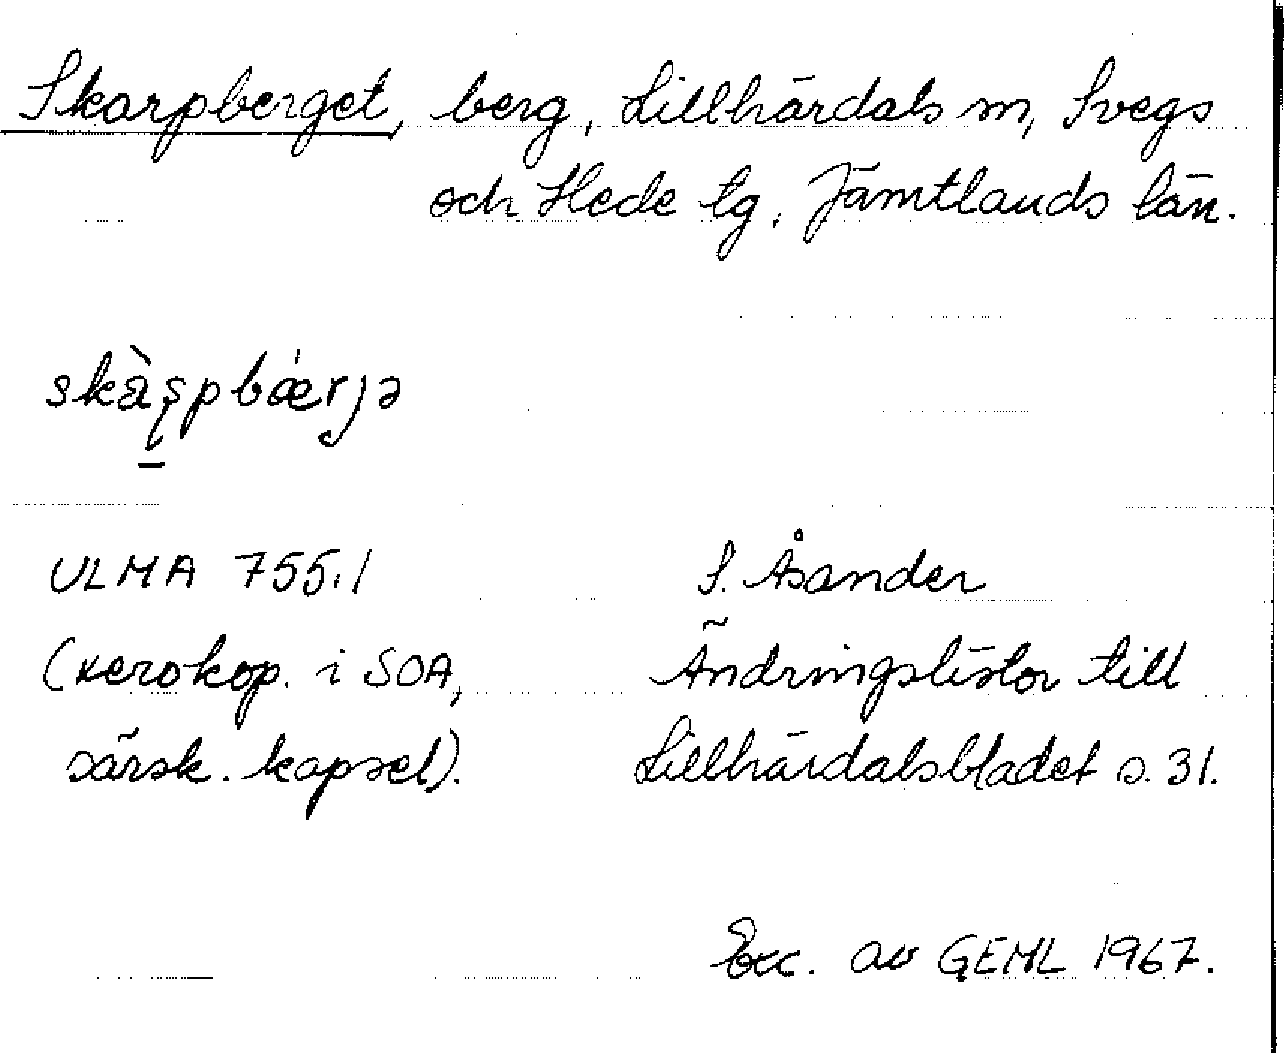 Skarpberget, berg, Lillhärdals m, Svegs
och Hede tg, Jämtlands län.
skàşpbǽrjə
ULMA 755:1
S. Åsander
(xerokop. i SOA,
Ändringslistor till
särsk. kapsel).
Lillhärdalsbladet s. 31.
Exc. av GEML 1967.